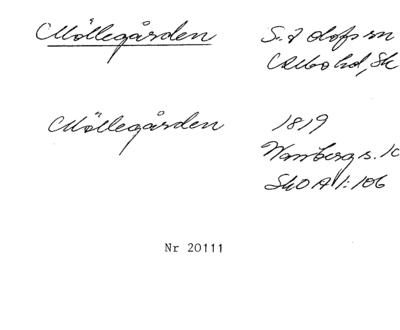 Möllegården S. Olofs sn
Albo hd, Sk
Möllegården 1819
Wamberg s. 10
SkOA 1:106
Nr 20111